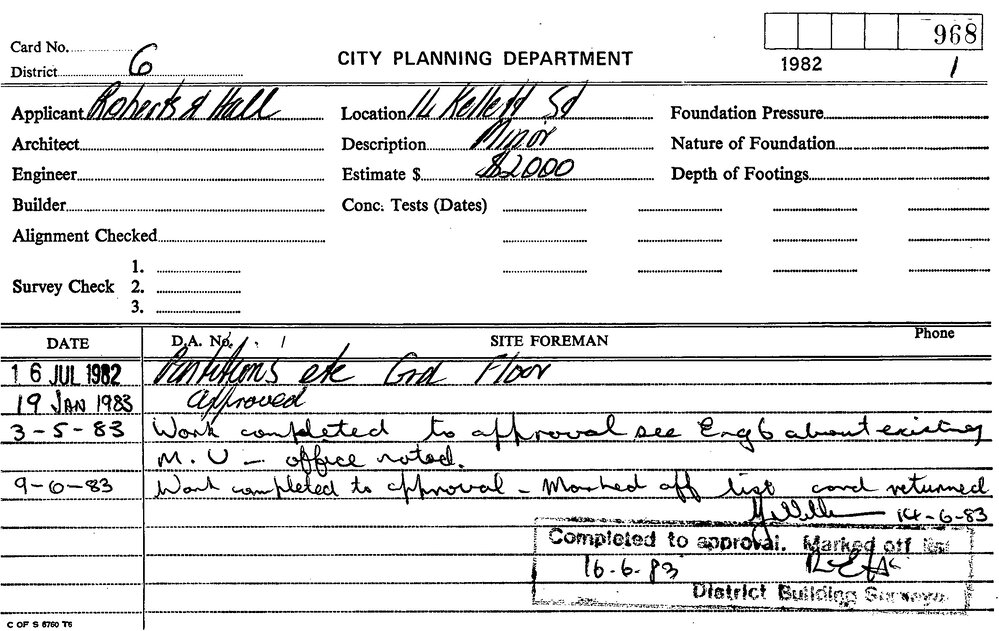 Card No. 968
District 6 CITY PLANNING DEPARTMENT 1982 1
Applicant Roberts & Hall Location 14 Kellett St Foundation Pressure
Architect Description Minor Nature of Foundation
Engineer Estimate $ $2000 Depth of Footings
Builder Conc. Tests (Dates)
Alignment Checked
1.
Survey Check 2.
3.
DATE D.A. No. SITE FOREMAN Phone
16 JUL 1982 Partitions etc Grd Floor
19 JAN 1983 Approved
3-5-83 Work completed to approval see Eng 6 about existing
M.U - office noted.
9-6-83 Work completed to approval - Marked off list card returned
14-6-83
Completed to approval. Marked off list
16.6.83
District Building Surveyor
C OF S 6760 T6